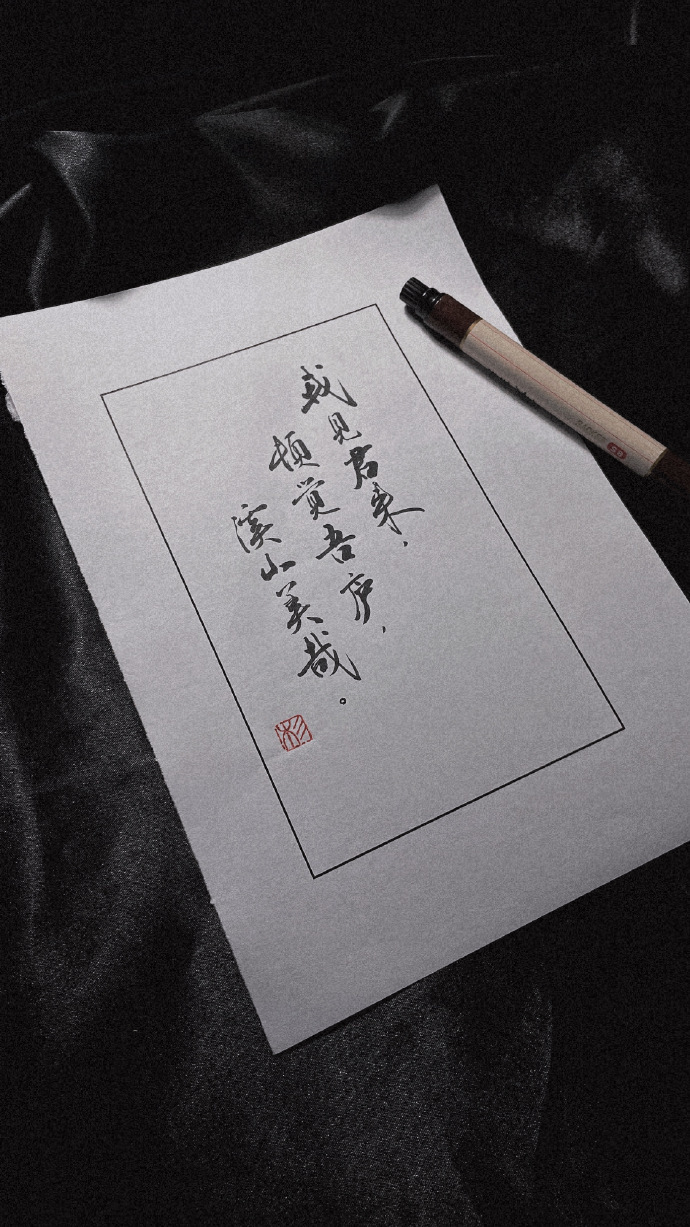 或见君来，
顿觉吾庐，
溪山美哉。
杉